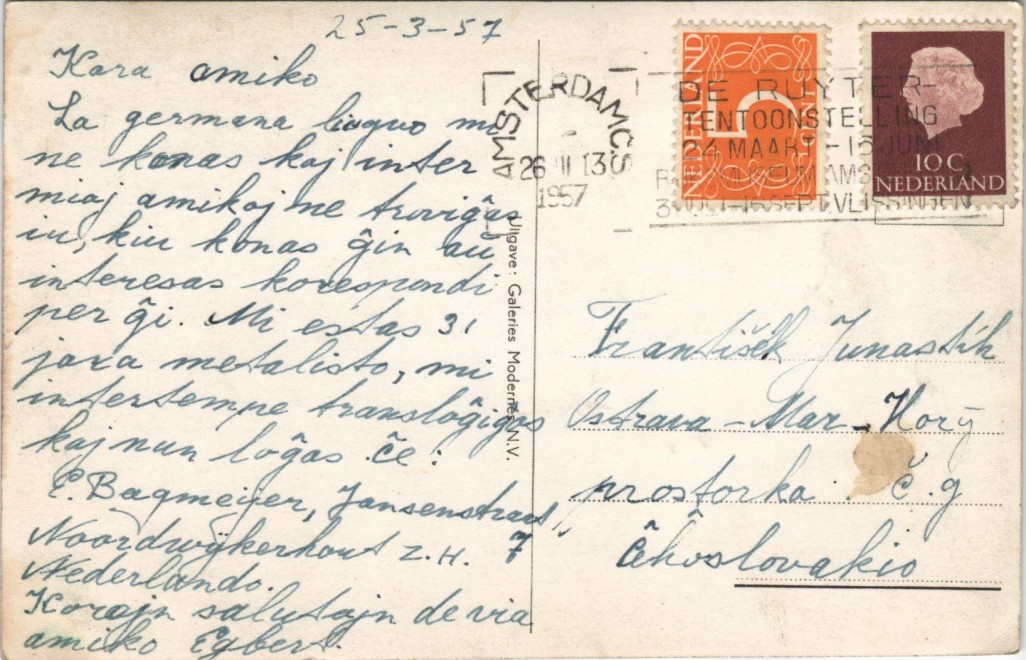 25-3-57
Kara amiko
La germana linguo mi
ne konas kaj inter
miaj amikoj ne troviĝas
iu, kiu konas ĝin aŭ
interesas korespondi
per ĝi. Mi estas 31
jara metalisto, mi
intertempe transloĝigos
kaj nun loĝas ĉe:
E. Bagmeijer, Jansenstraat
Noordwijkerhout Z.H. 7
Nederlando.
Korajn salutajn de via
amiko Egbert.
Uitgave: Galeries Modernes N.V.
AMSTERDAM CS
26 III 13
1957
DE RUYTER-
TENTOONSTELLING
24 MAART-15 JUNI
AMS
SEPT. VLISSINGEN
NEDERLAND
5
CENT
10 C
NEDERLAND
František Junaštík
Ostrava-Mar-Hory
prostorka č.9
Ĉeĥoslovakio